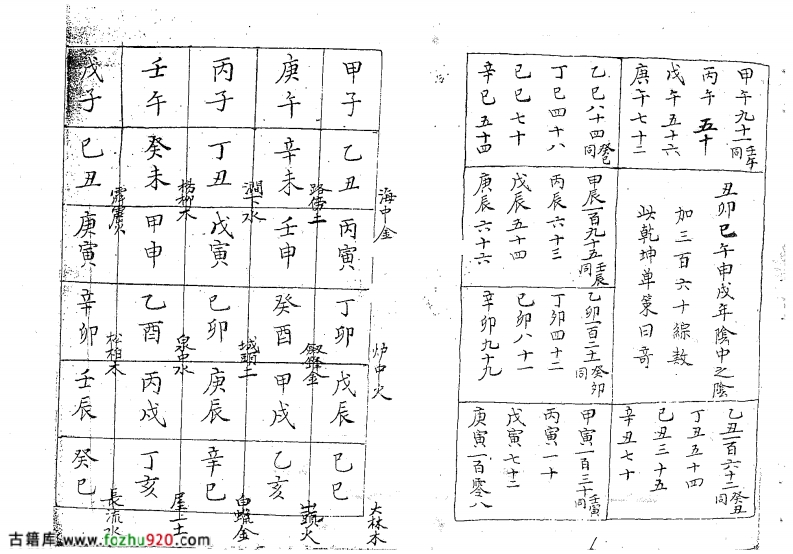 甲午九十一壬午同
丙午五十
戊午五十六
庚午七十二
乙巳八十四癸巳同
丁巳四十八
己巳七十
辛巳五十四
丑卯巳午申戌年陰中之陰
加三百六十綜数
此乾坤单策曰奇
甲辰一百九十五壬辰同
丙辰六十三
戊辰五十四
庚辰六十六
乙卯一百二十一癸卯同
丁卯四十二
己卯八十一
辛卯九十九
乙丑一百六十二癸丑同
丁丑五十四
己丑三十五
辛丑七十
甲寅一百三十同壬寅
丙寅一十
戊寅七十二
庚寅一百零八
甲子 乙丑 海中金
丙寅 丁卯 炉中火
戊辰 己巳 大林木
庚午 辛未 路傍土
壬申 癸酉 劍鋒金
甲戌 乙亥 火
丙子 丁丑 澗下水
戊寅 己卯 城頭土
庚辰 辛巳 白蠟金
壬午 癸未 楊柳木
甲申 乙酉 泉中水
丙戌 丁亥 屋上土
戊子 己丑 霹靂火
庚寅 辛卯 松柏木
壬辰 癸巳 長流水
古籍库:www.fozhu920.com